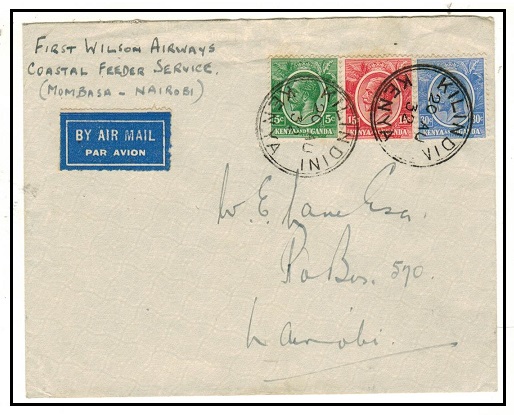 FIRST WILSON AIRWAYS
COASTAL FEEDER SERVICE.
(MOMBASA - NAIROBI)
BY AIR MAIL
PAR AVION
5c 5c
KENYA AND UGANDA
15 15
KENYA AND UGANDA
30c 30c
KENYA AND UGANDA
KILINDINI
20 AU
32
KENYA
KILINDINI
20 AU
32
KENYA
W. E. Lane Esq.
P.O. Box. 570.
Nairobi.